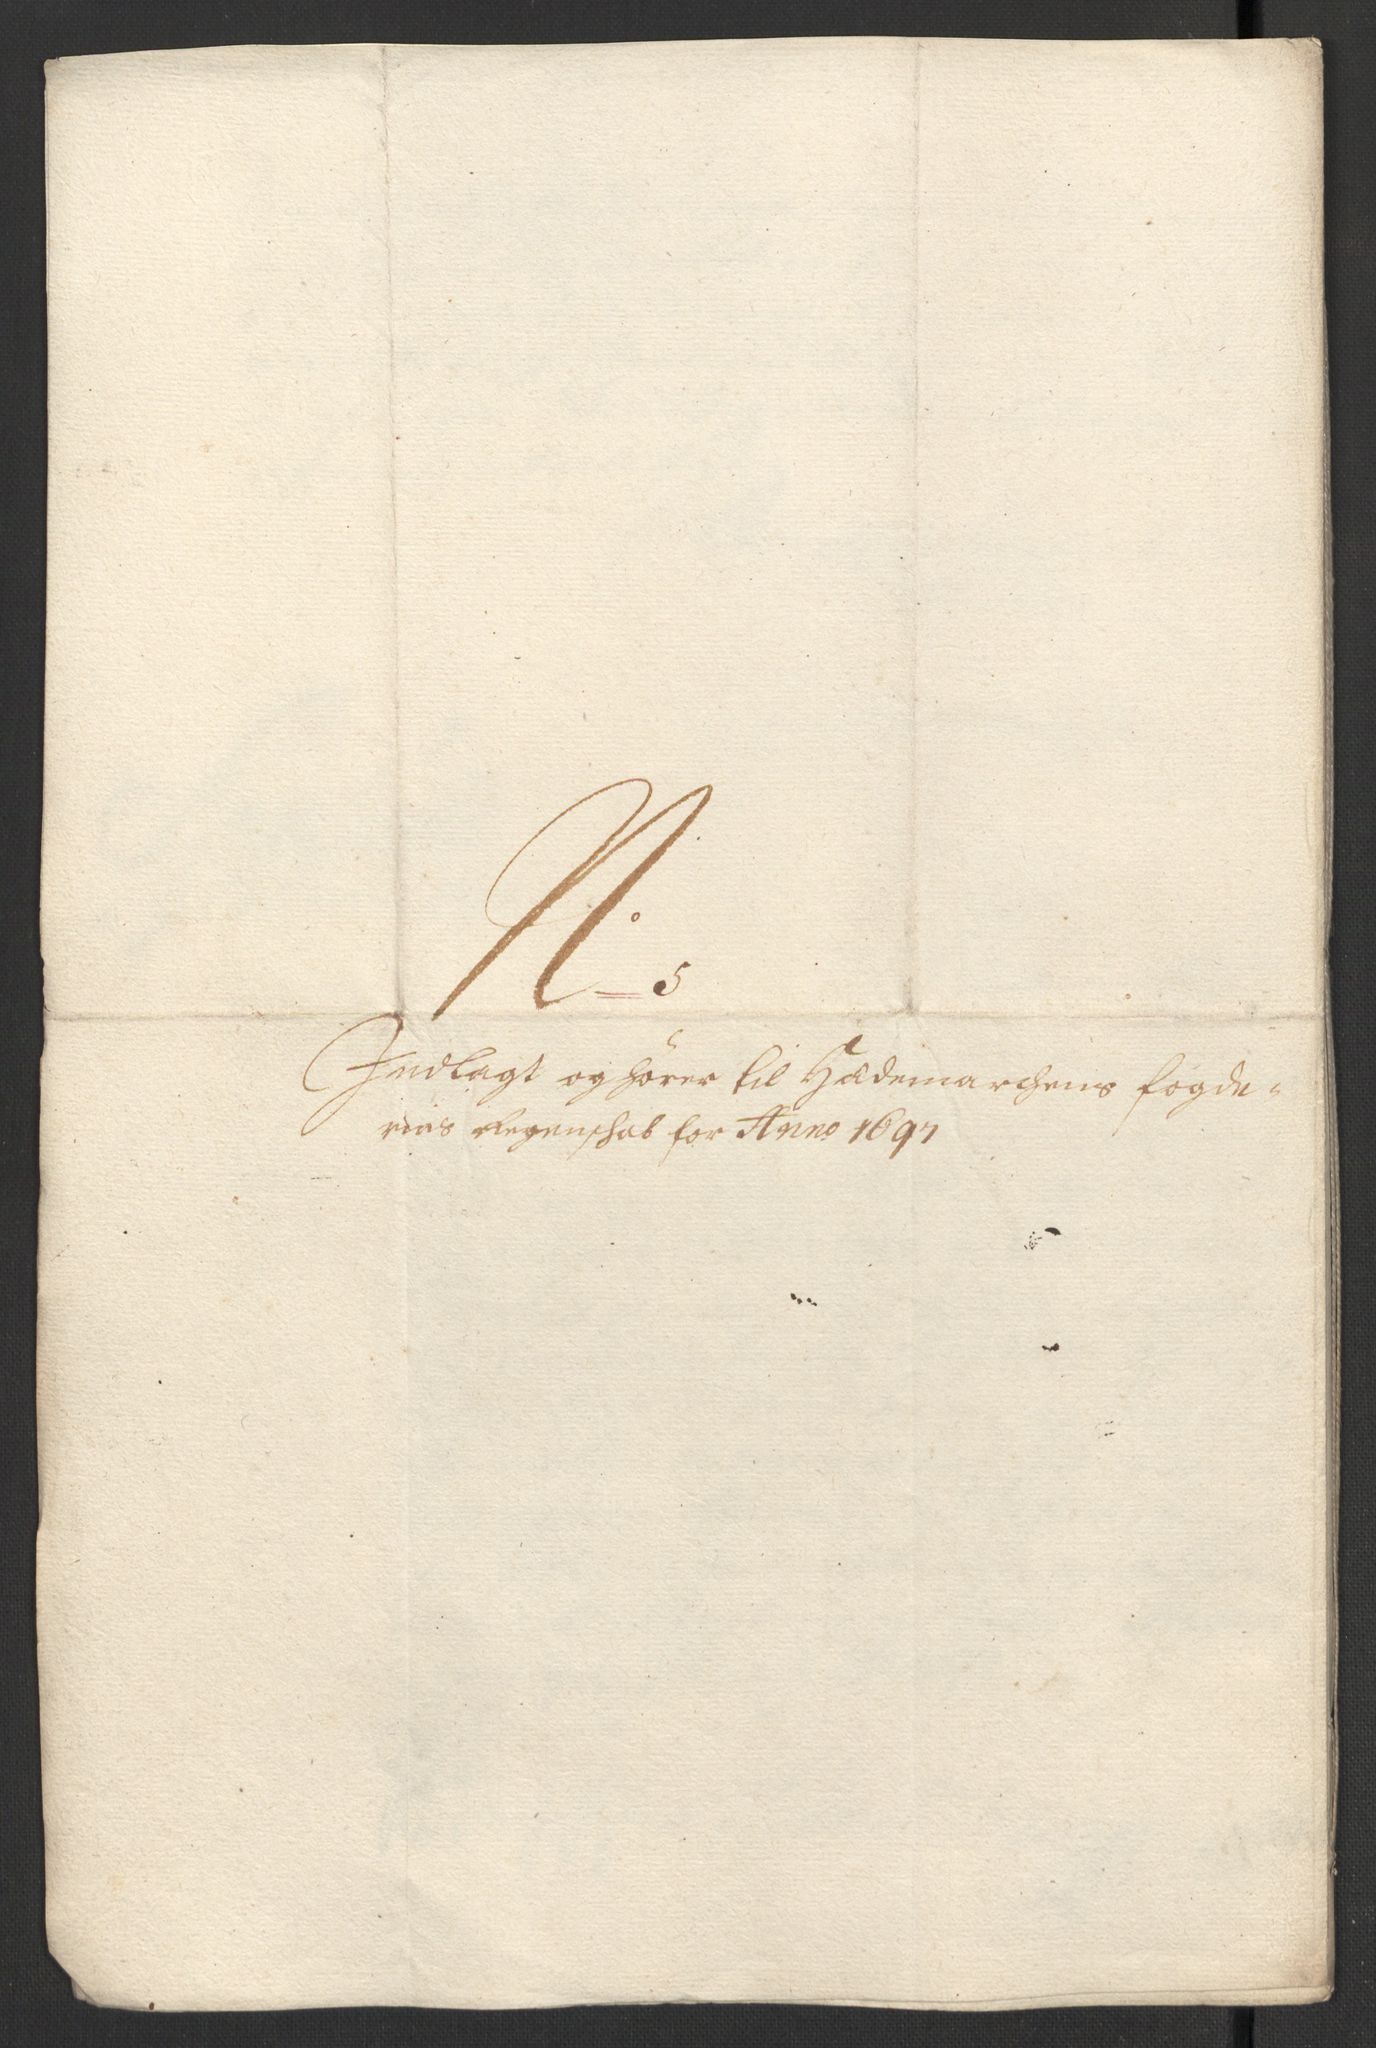 No. 5
Indlagt og hörer til Hædemarchens fogde-
ries Regenschab for Anno 1697